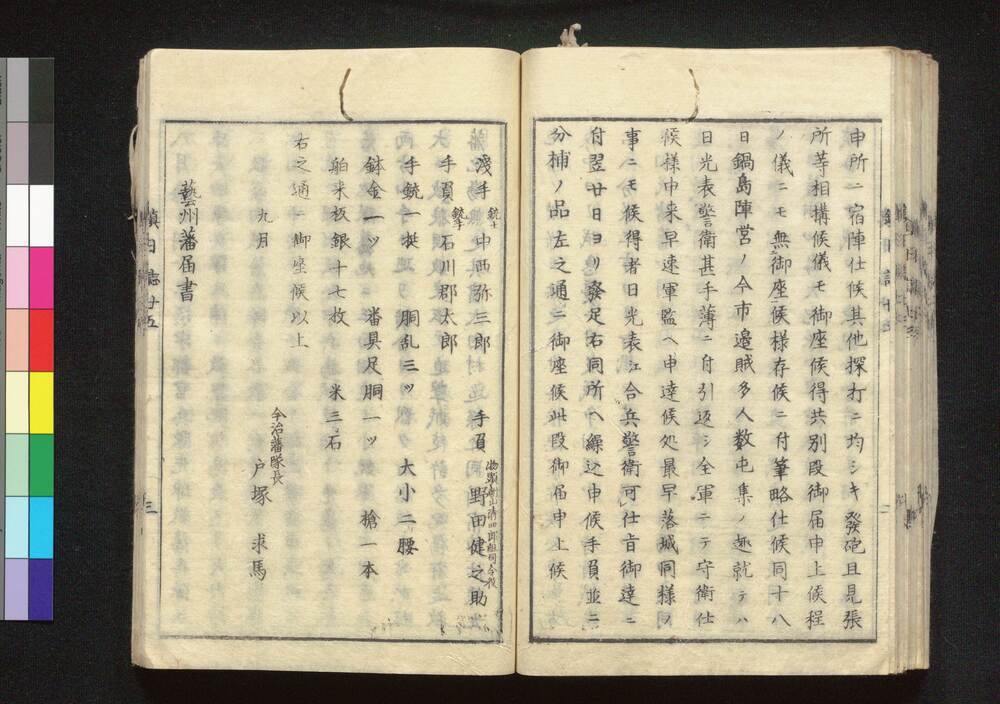 申所ニ宿陣仕候其他探打ニ均シキ發砲且見張
所等相搆候儀モ御座候得共別段御届申上候程
ノ儀ニモ無御座候様存候ニ付筆略仕候同十八
日鍋島陣営ノ今市邉賊多人数屯集ノ趣就テハ
日光表警衛甚手薄ニ付引返シ全軍ニテ守衛仕
候様申来早速軍監ヘ申達候処最早落城同様ノ
事ニモ候得者日光表江合兵警衛可仕旨御達ニ
付翌廿日ヨリ發足右同所ヘ繰込申候手負並ニ
分捕ノ品左之通ニ御座候此段御届申上候
淺手 銃士 中西弥三郎 手負 野田健之助
手負 銃手 石川郡太郎
手銃一挺 胴乱三ツ 大小二腰
鉢金一ツ 番具足胴一ツ 槍一本
舶来板銀十七枚 米三石
右之通ニ御座候以上
九月 今治藩隊長 戸塚求馬
藝州藩届書
鎮日誌廿五 三